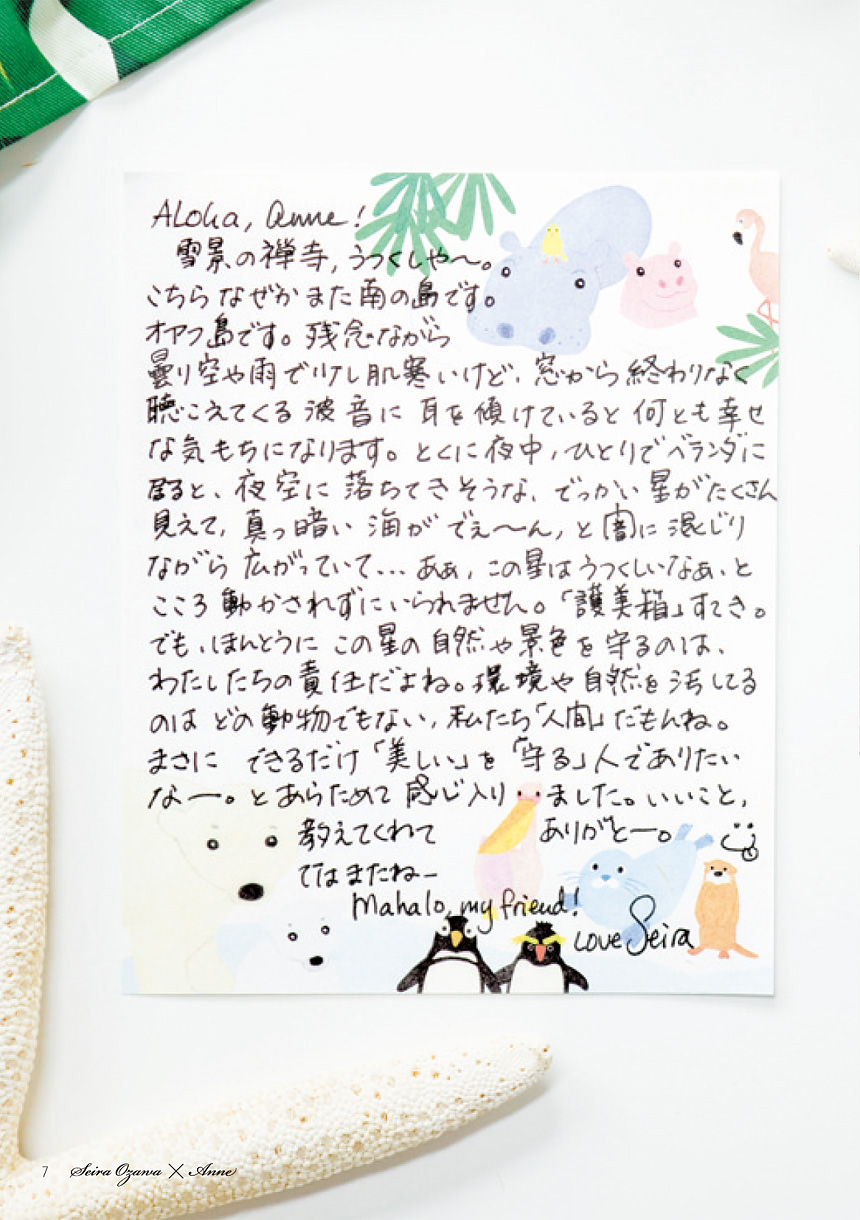 Aloha, Anne!
雪景の禅寺，うつくしや〜。
こちらなぜかまた南の島です。
オアフ島です。残念ながら
曇り空や雨で少し肌寒いけど、窓から終わりなく
聴こえてくる波音に耳を傾けていると何とも幸せ
な気もちになります。とくに夜中，ひとりでベランダに
居ると、夜空に落ちてきそうな、でっかい星がたくさん
見えて，真っ暗い海がでぇ〜〜ん，と闇に混じり
ながら広がっていて…あぁ，この星はうつくしいなぁ、と
こころ動かされずにいられません。「護美箱」すてき。
でも、ほんとうにこの星の自然や景色を守るのは、
わたしたちの責任だよね。環境や自然を汚してる
のはどの動物でもない，私たち「人間」だもんね。
まさに できるだけ「美しい」を「守る」人でありたい
なー。とあらためて感じ入りました。いいこと，
教えてくれて ありがとー。
ではまたねー
Mahalo, my friend!
Love Seira
7 Seira Ozawa × Anne